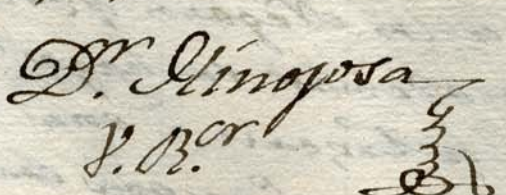 Dr. Hinojosa
V. R.or